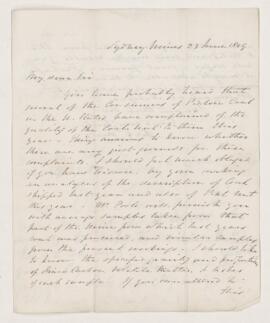 Sydney Mines 23 June 1849
My dear Sir
You have probably heard that
several of the Consumers of Pictou Coal
in the U. States have complained of the
quality of the Coals sent to them this
year - Being anxious to know whether
there are any just grounds for these
complaints, I should feel much obliged
if you have leisure, by your making
an analysis of the description of Coal
shipped last year and also of that sent
this year. Mr. Poole will furnish you
with average samples taken from that
part of the mine from which last years
coal was procured, and similar samples
from the present workings. I should like
to know the specific gravity and proportion
of fixed Carbon, Volatile Matter, & Ashes
of each sample. If you were addressed to
this